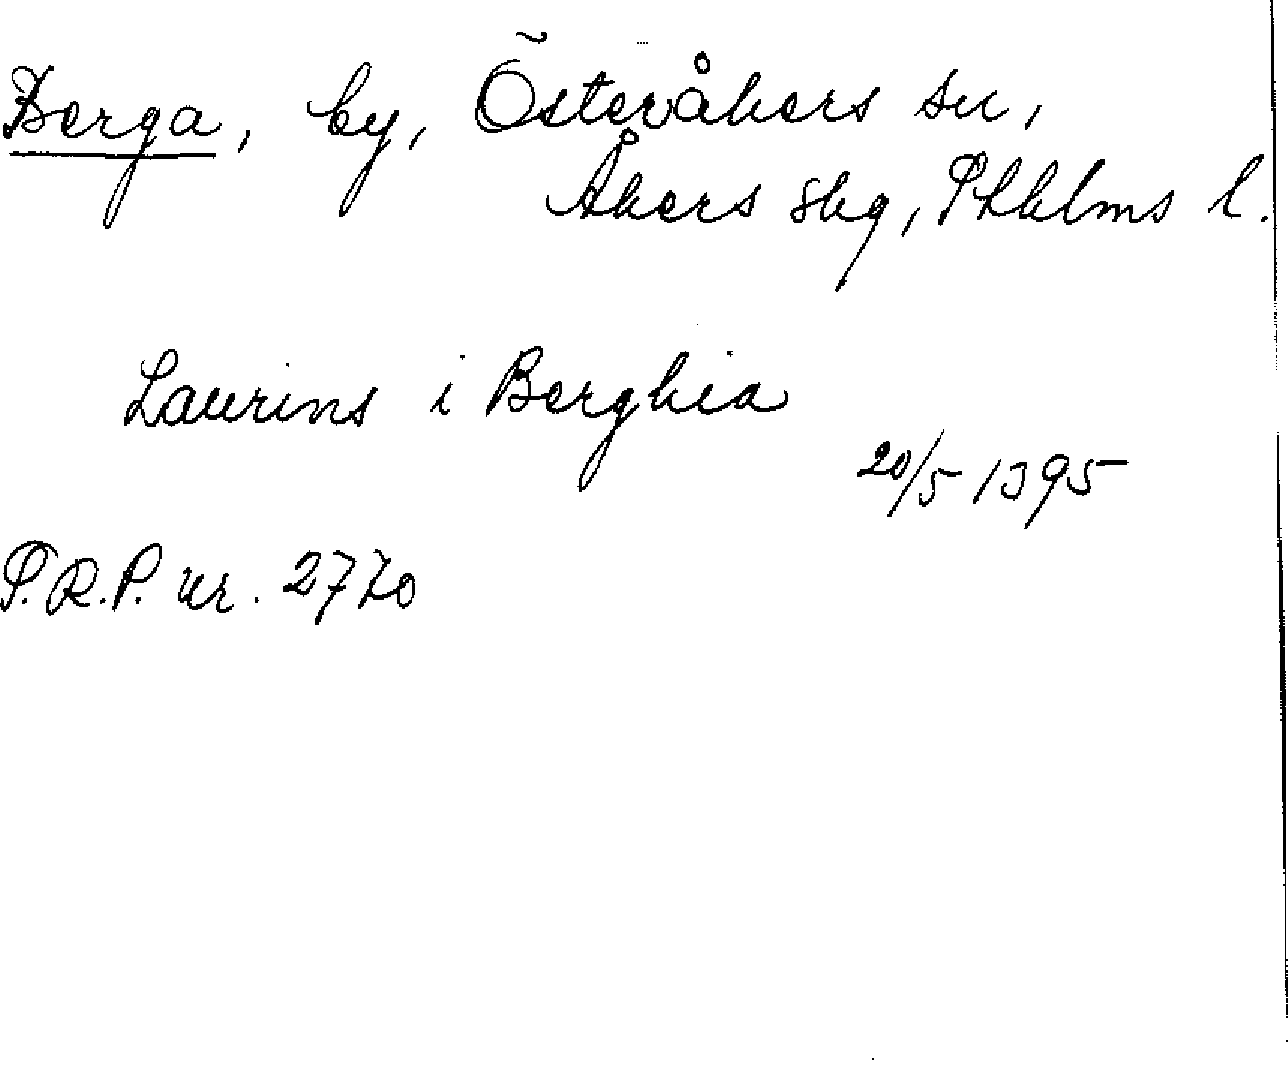 Berga, by, Österåkers sn,
Åkers skg, Sthlms l.
Laurins i Berghia
20/5 1395
S.R.P. nr. 2770